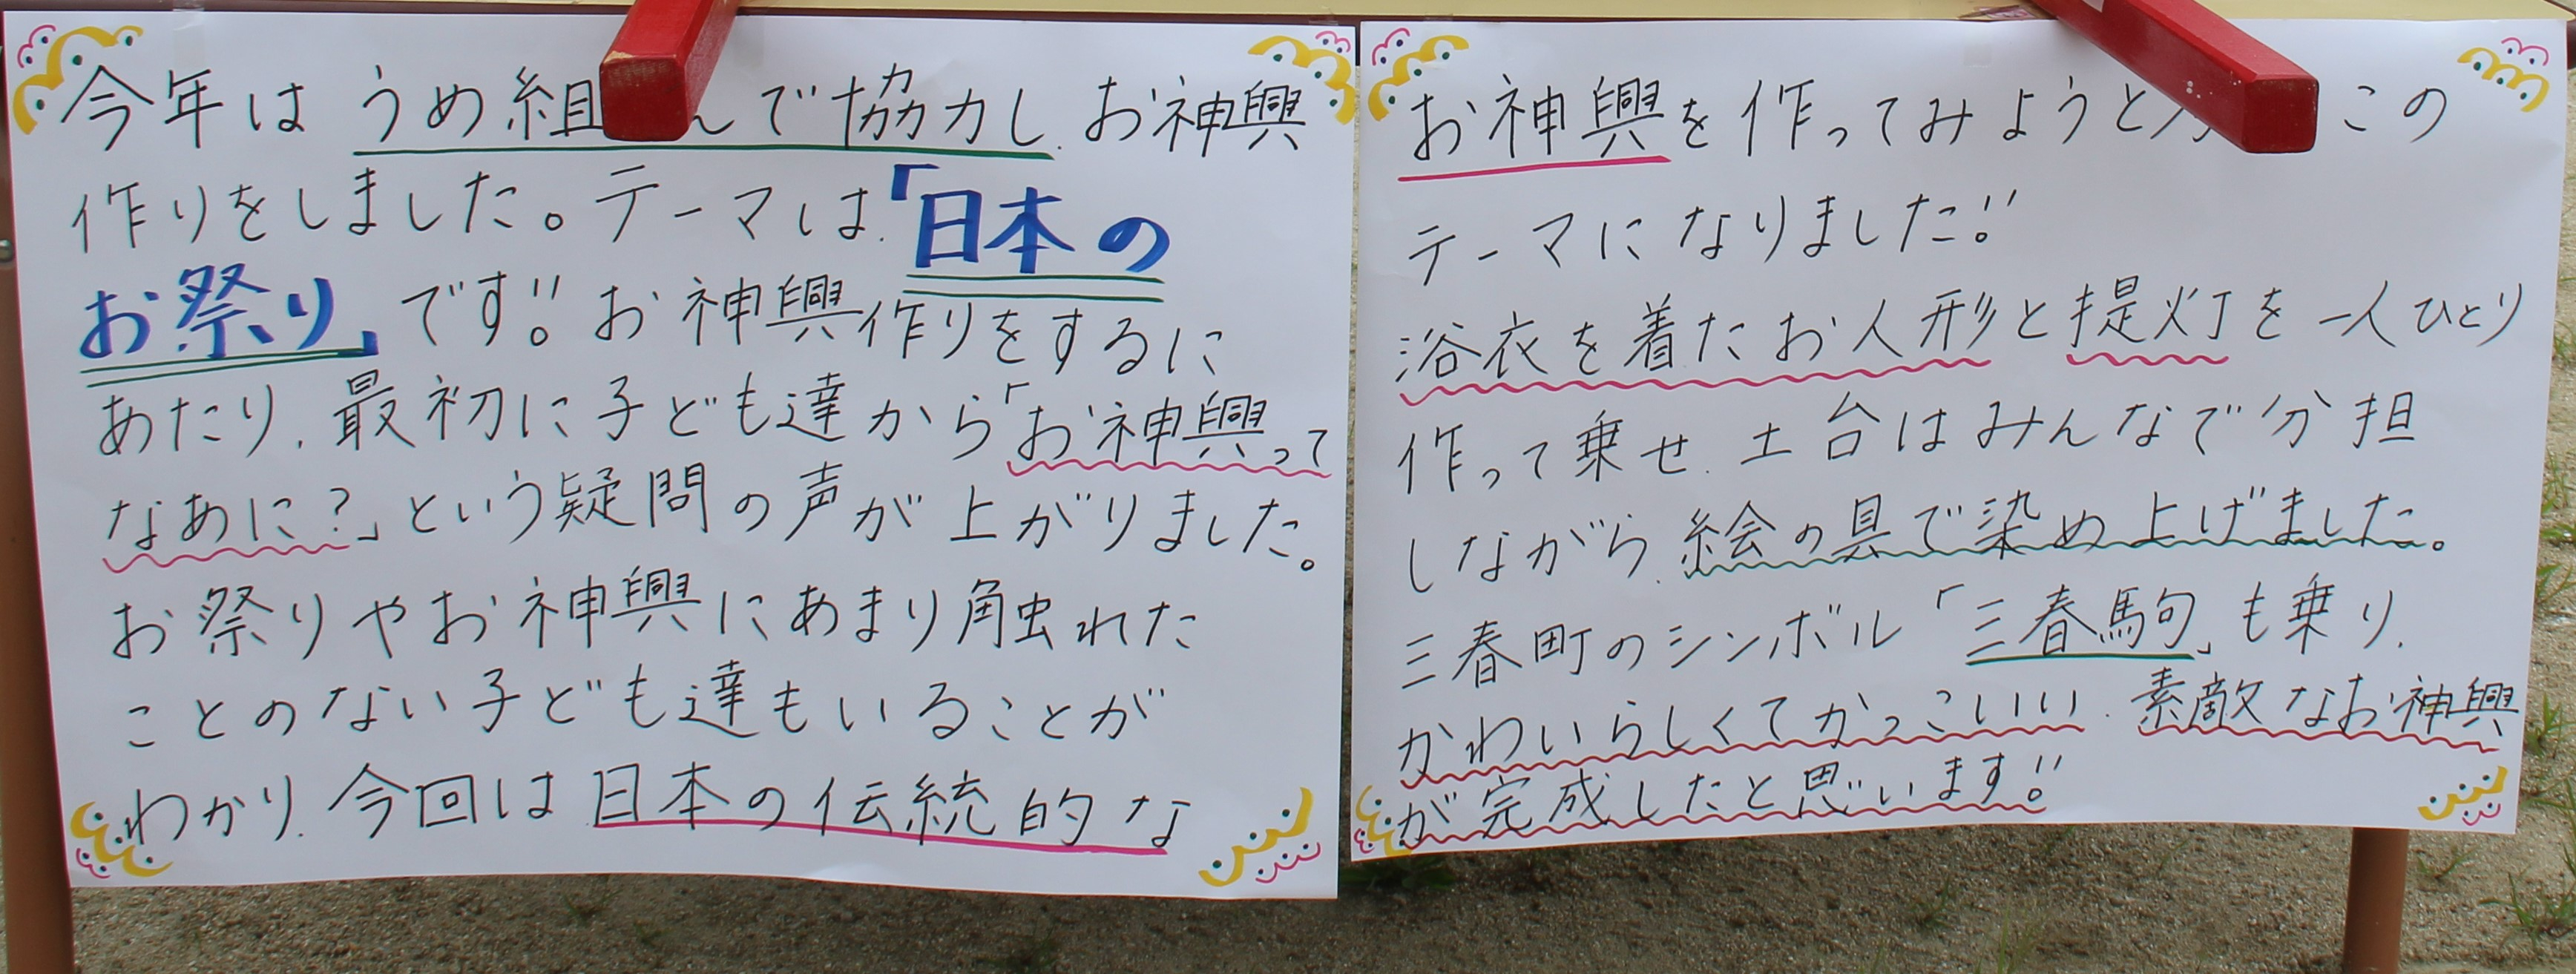 今年はうめ組んで協力し、お神興
作りをしました。テーマは、「日本の
お祭り」です!!お神興作りをするに
あたり、最初に子ども達から「お神興って
なあに?」という疑問の声が上がりました。
お祭りやお神興にあまり触れた
ことのない子ども達もいることが
わかり、今回は日本の伝統的な
お神興を作ってみようと この
テーマになりました!!
浴衣を着たお人形と提灯を一人ひとり
作って乗せ、土台はみんなで分担
しながら、絵の具で染め上げました。
三春町のシンボル「三春駒」も乗り、
かわいらしくてかっこいい、素敵なお神興
が完成したと思います!!